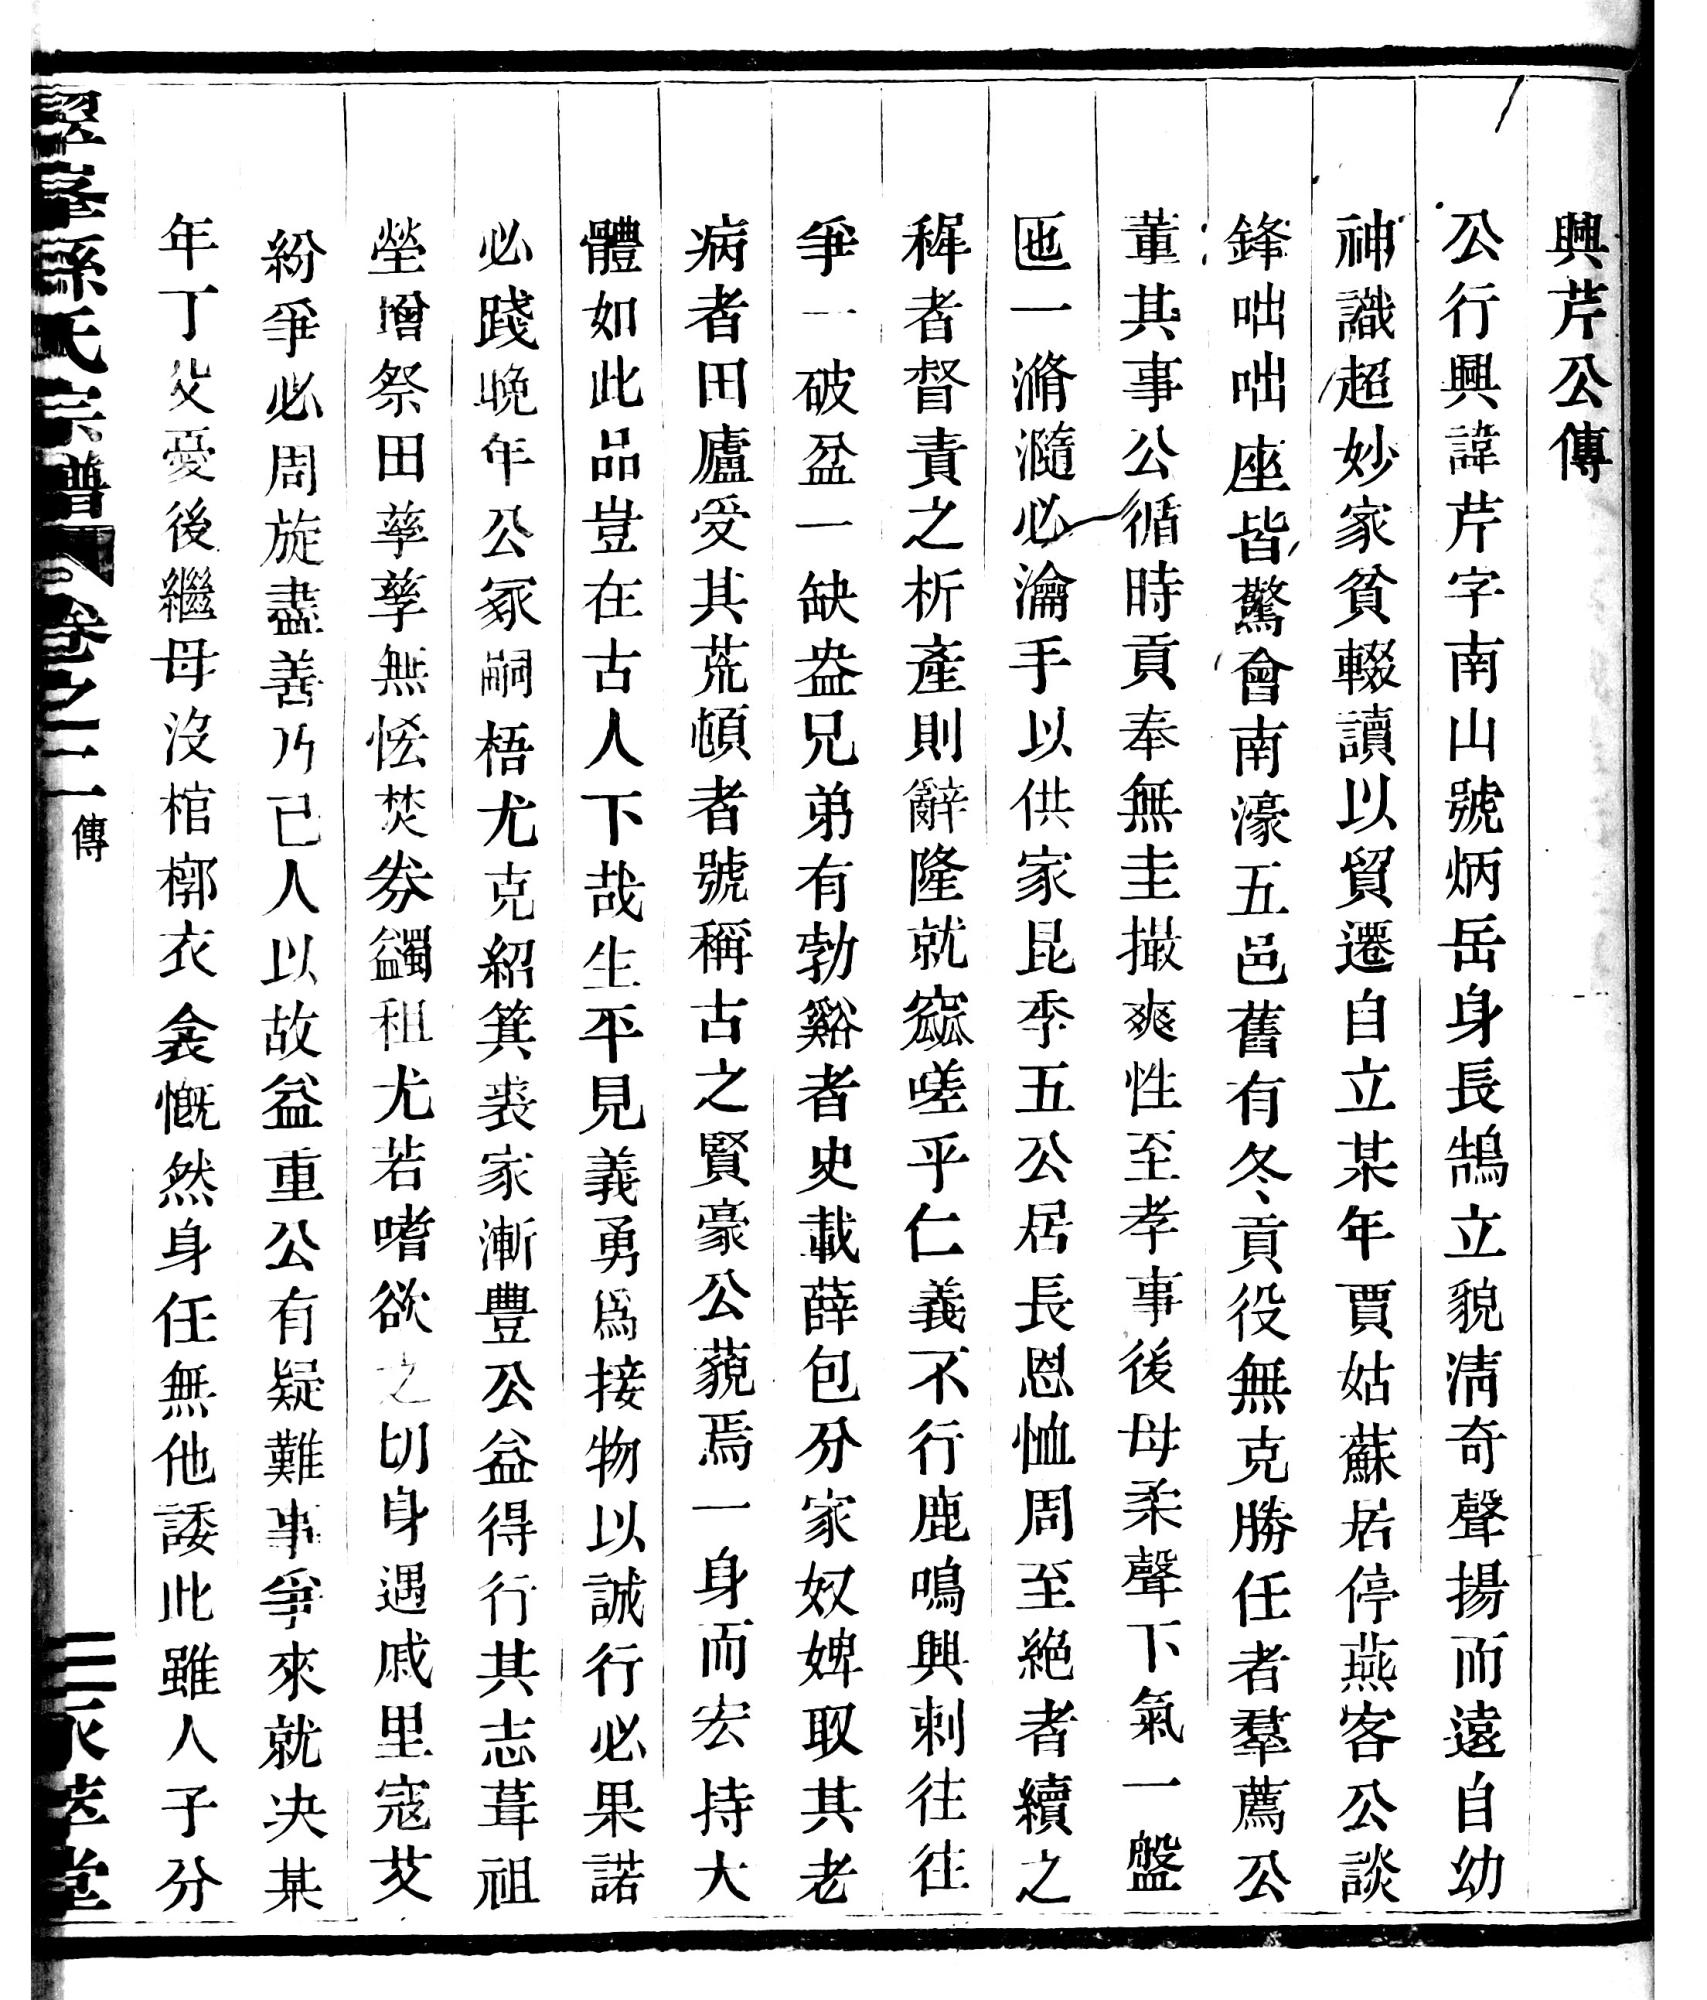 興芹公傳
公行興諱芹字南山號炳岳身長鵠立貌清奇聲揚而遠自幼
神識超妙家貧輟讀以貿遷自立某年賈姑蘇居停燕客公談
鋒咄咄座皆驚會南濠五邑舊有冬貢役無克勝任者羣薦公
董其事公循時貢奉無圭撮爽性至孝事後母柔聲下氣一盤
匜一滫瀡必瀹手以供家昆季五公居長恩恤周至絕者續之
穉者督責之析產則辭隆就窳嗟乎仁義不行鹿鳴興刺往往
爭一破盆一缺盎兄弟有勃谿者史載薛包分家奴婢取其老
病者田廬受其荒頓者號稱古之賢豪公藐焉一身而宏持大
體如此品豈在古人下哉生平見義勇爲接物以誠行必果諾
必踐晚年公冢嗣梧尤克紹箕裘家漸豐公益得行其志葺祖
塋增祭田孳孳無恡焚券蠲租尤若嗜欲之切身遇戚里寇攻
紛爭必周旋盡善乃已人以故益重公有疑難事爭來就决某
年丁父憂後繼母沒棺槨衣衾慨然身任無他諉此雖人子分
峯孫氏宗譜 卷之二 傳 二 永萃堂